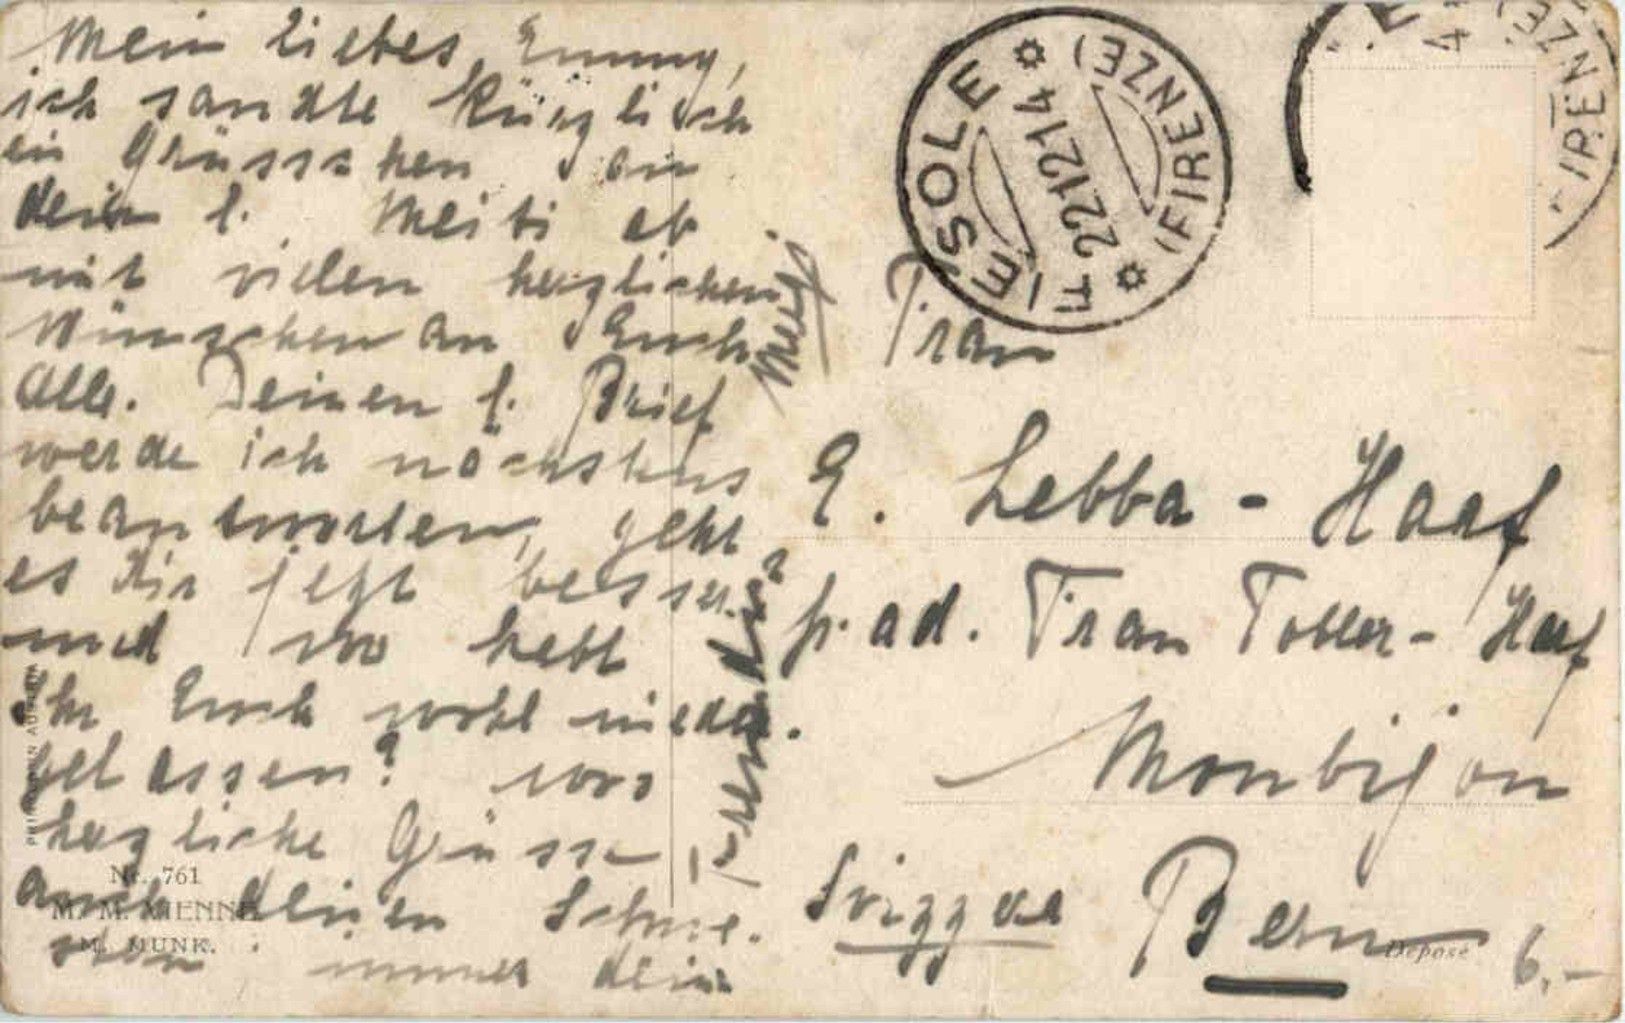 Mein liebes Emmy,
ich sandte kürzlich
ein Grüsschen an
dein l. Meiti ab
mit vielen herzlichen
Wünschen an Euch
Alle. Deinen l. Brief
werde ich nächstens
beantworten, geht
es Dir jetzt besser
und wo habt
Ihr Euch wohl nieder-
gelassen?
herzliche Grüsse
auch deinen Schwe-
stern immer dein
FIESOLE
(FIRENZE)
22 12 14
4
(FIRENZE)
Frau
E. Lebba - Haaf
p. ad. Frau Tobler - Haaf
Monbijou
Svizzera Bern
6.-
Nr. 761
M. M. VIENNE
M. MUNK.
Déposé